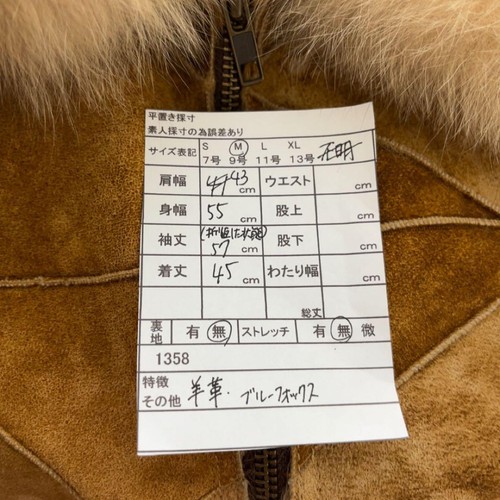 平置き採寸
素人採寸の為誤差あり
サイズ表記 S M L XL 不明
7号 9号 11号 13号
肩幅 43 cm ウエスト cm
身幅 55 cm 股上 cm
袖丈 (折返した状態) 57 cm 股下 cm
着丈 45 cm わたり幅 cm
総丈
裏地 有 無 ストレッチ 有 無 微
1358
特徴
その他 羊革・ブルーフォックス